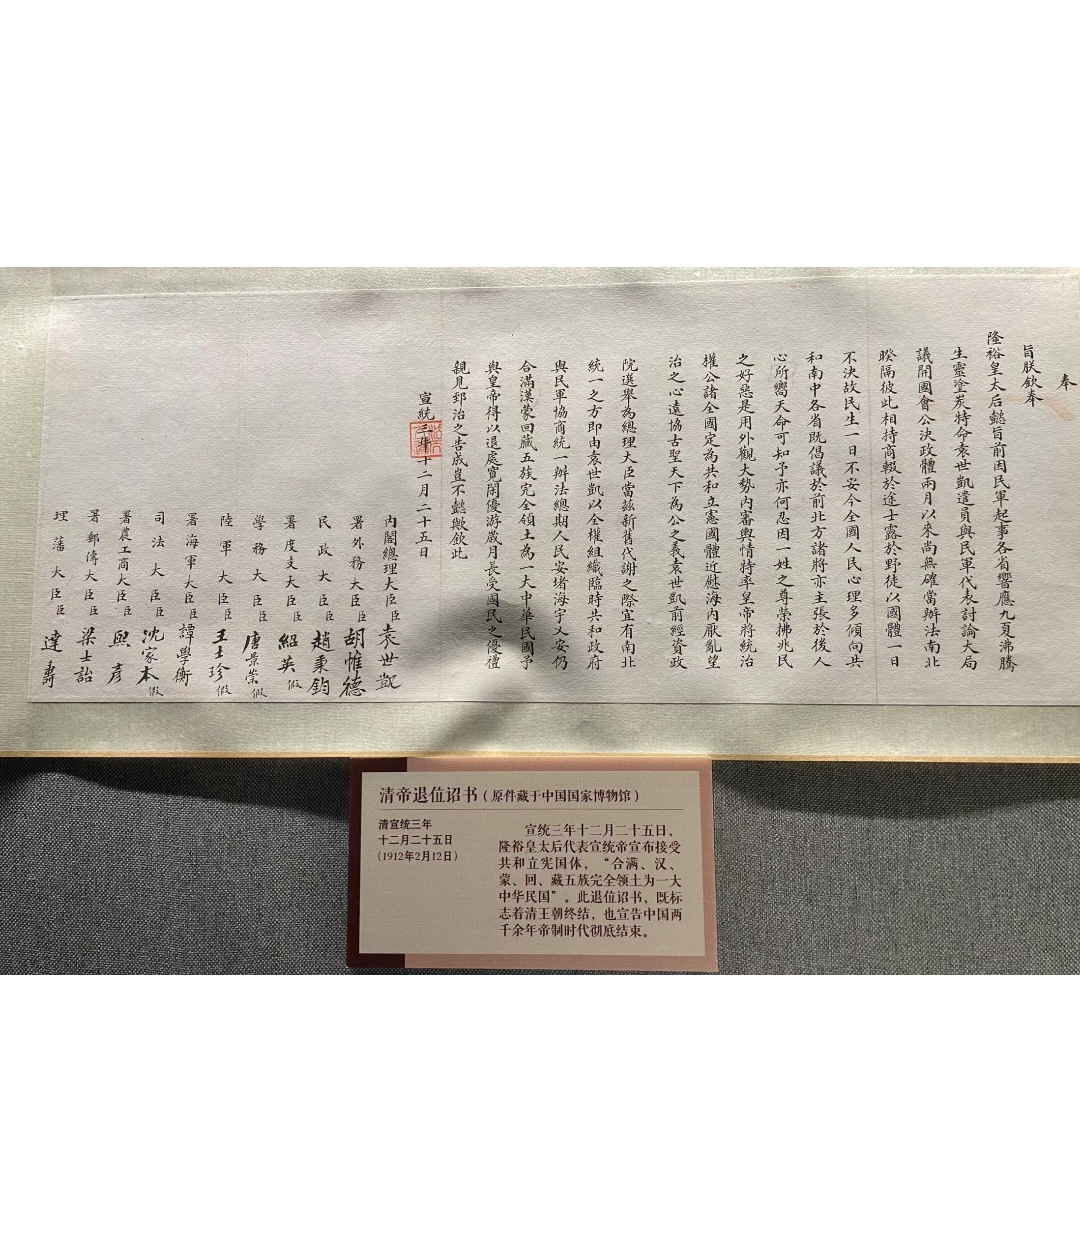 奉
旨朕欽奉
隆裕皇太后懿旨前因民軍起事各省響應九夏沸騰
生靈塗炭特命袁世凱遣員與民軍代表討論大局
議開國會公決政體兩月以來尚無確當辦法南北
暌隔彼此相持商輟於途士露於野徒以國體一日
不決故民生一日不安今全國人民心理多傾向共
和南中各省既倡議於前北方諸將亦主張於後人
心所嚮天命可知予亦何忍因一姓之尊榮拂兆民
之好惡是用外觀大勢內審輿情特率皇帝將統治
權公諸全國定為共和立憲國體近慰海內厭亂望
治之心遠協古聖天下為公之義袁世凱前經資政
院選舉為總理大臣當茲新舊代謝之際宜有南北
統一之方即由袁世凱以全權組織臨時共和政府
與民軍協商統一辦法總期人民安堵海宇乂安仍
合滿漢蒙回藏五族完全領土為一大中華民國予
與皇帝得以退處寬閒優游歲月長受國民之優禮
親見郅治之告成豈不懿歟欽此
宣統三年十二月二十五日
內閣總理大臣臣袁世凱
署外務大臣臣胡惟德
民政大臣臣趙秉鈞
署度支大臣臣紹英假
學務大臣臣唐景崇假
陸軍大臣臣王士珍假
署海軍大臣臣譚學衡
司法大臣臣沈家本假
署農工商大臣臣熙彥
署郵傳大臣臣梁士詒
理藩大臣臣達壽
清帝退位诏书（原件藏于中国国家博物馆）
清宣统三年
十二月二十五日
（1912年2月12日）
宣统三年十二月二十五日，
隆裕皇太后代表宣统帝宣布接受
共和立宪国体，“合满、汉、
蒙、回、藏五族完全领土为一大
中华民国”。此退位诏书，既标
志着清王朝终结，也宣告中国两
千余年帝制时代彻底结束。